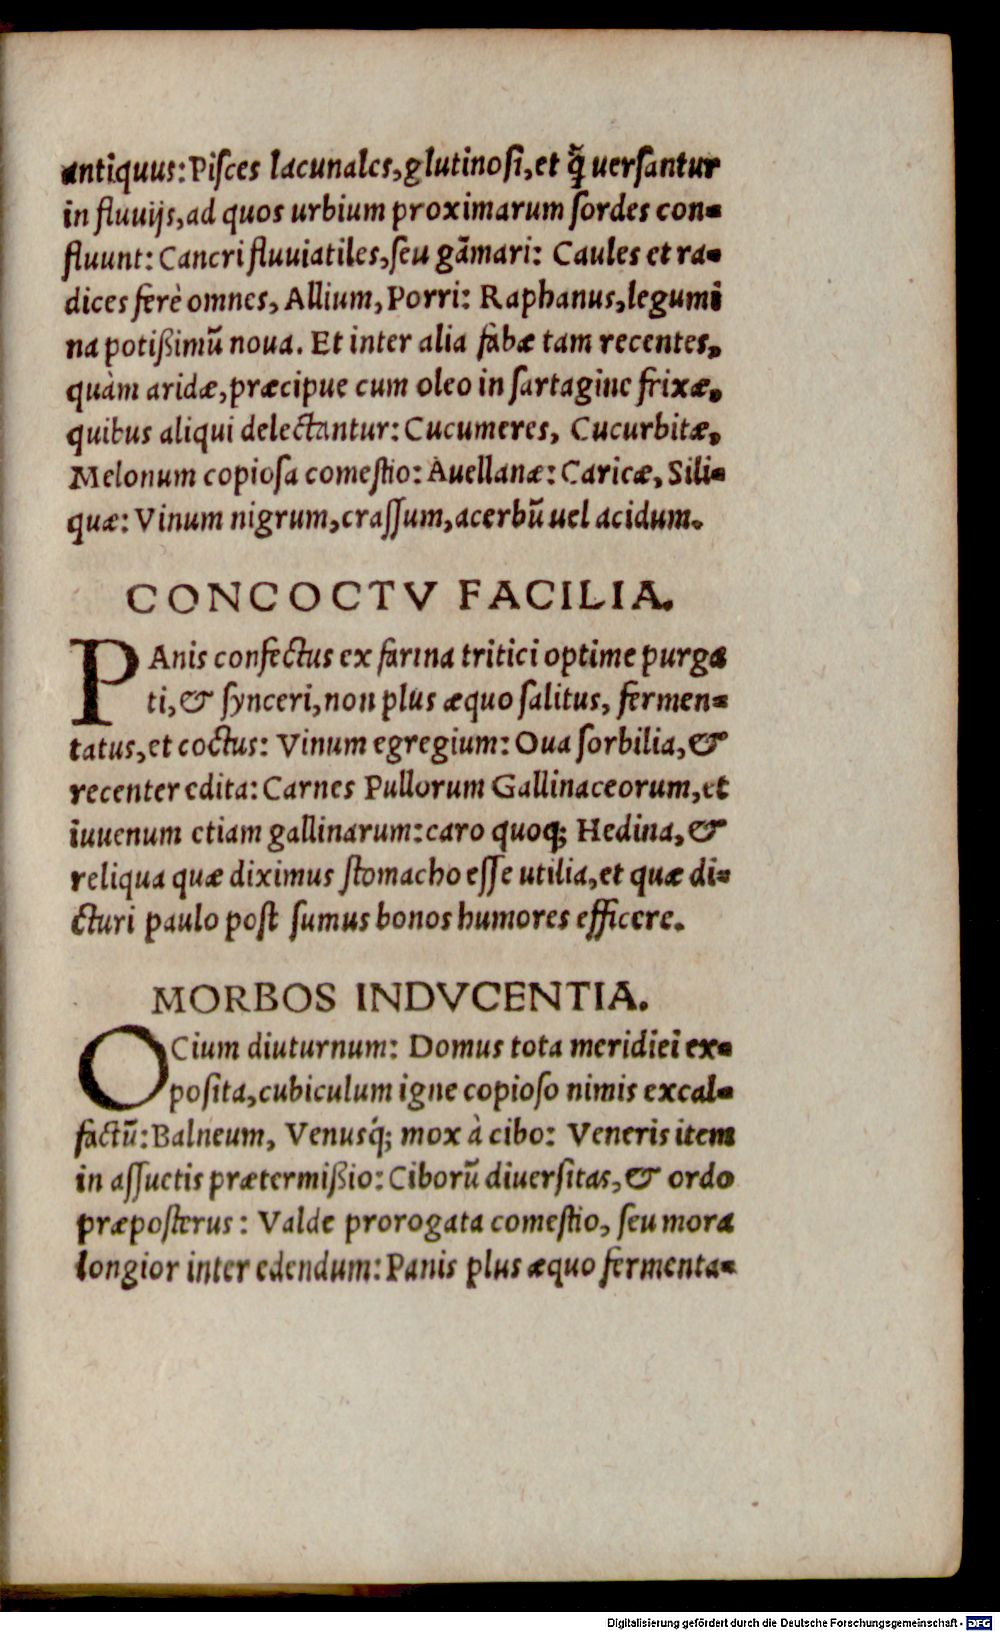 antiquus: Pisces lacunales, glutinosi, et q̃ uersantur
in fluuijs, ad quos urbium proximarum sordes con-
fluunt: Cancri fluuiatiles, seu gãmari: Caules et ra-
dices ferè omnes, Allium, Porri: Raphanus, legumi
na potißimũ noua. Et inter alia fabæ tam recentes,
quàm aridæ, præcipue cum oleo in sartagine frixæ,
quibus aliqui delectantur: Cucumeres, Cucurbitæ,
Melonum copiosa comestio: Auellanæ: Caricæ, Sili-
quæ: Vinum nigrum, crassum, acerbũ uel acidum.
CONCOCTV FACILIA.
PAnis confectus ex farina tritici optime purga
ti, & synceri, non plus æquo salitus, fermen-
tatus, et coctus: Vinum egregium: Oua sorbilia, &
recenter edita: Carnes Pullorum Gallinaceorum, et
iuuenum etiam gallinarum: caro quoq; Hedina, &
reliqua quæ diximus stomacho esse utilia, et quæ di-
cturi paulo post sumus bonos humores efficere.
MORBOS INDVCENTIA.
OCium diuturnum: Domus tota meridiei ex-
posita, cubiculum igne copioso nimis excal-
factũ: Balneum, Venusq́; mox à cibo: Veneris item
in assuetis prætermißio: Ciborũ diuersitas, & ordo
præposterus: Valde prorogata comestio, seu mora
longior inter edendum: Panis plus æquo fermenta-
Digitalisierung gefördert durch die Deutsche Forschungsgemeinschaft - DFG